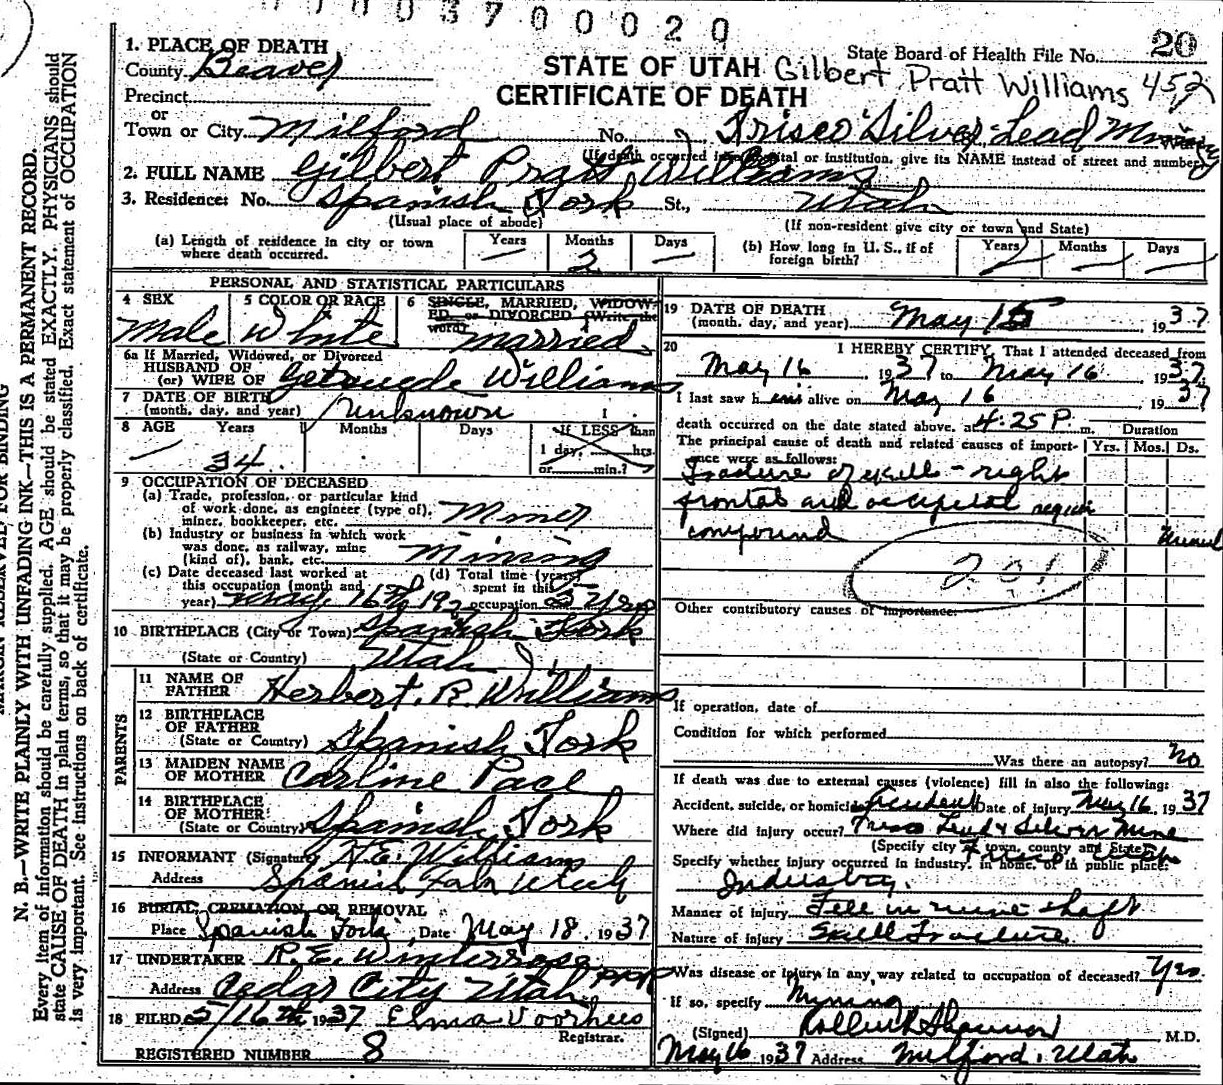 0 0 0 3 7 0 0 0 2 0
1. PLACE OF DEATH
County Beaver
STATE OF UTAH
CERTIFICATE OF DEATH
State Board of Health File No. 20
Gilbert Pratt Williams 452
Precinct
or
Town or City Milford No. Frisco Silver-Lead
(If death occurred in hospital or institution, give its NAME instead of street and number)
2. FULL NAME Gilbert Pratt Williams
3. Residence: No. Spanish Fork St., Utah
(Usual place of abode) (If non-resident give city or town and State)
(a) Length of residence in city or town where death occurred. Years — Months 2 Days —
(b) How long in U. S., if of foreign birth? Years Months — Days —
PERSONAL AND STATISTICAL PARTICULARS
4 SEX Male
5 COLOR OR RACE White
6 SINGLE, MARRIED, WIDOWED or DIVORCED (Write the word) married
6a If Married, Widowed, or Divorced
HUSBAND OF
(or) WIFE OF Williams
7 DATE OF BIRTH
(month, day, and year) Unknown
8 AGE Years 34 Months Days If LESS than
1 day, hrs.
or min.?
9 OCCUPATION OF DECEASED
(a) Trade, profession, or particular kind
of work done, as engineer (type of),
miner, bookkeeper, etc. Miner
(b) Industry or business in which work
was done, as railway, mine
(kind of), bank, etc. Mining
(c) Date deceased last worked at
this occupation (month and
year) May 16
(d) Total time (years)
spent in this
occupation
10 BIRTHPLACE (City or Town) Spanish Fork
(State or Country) Utah
PARENTS
11 NAME OF
FATHER Herbert. R. Williams
12 BIRTHPLACE
OF FATHER
(State or Country) Spanish Fork
13 MAIDEN NAME
OF MOTHER Carline Pace
14 BIRTHPLACE
OF MOTHER
(State or Country) Spanish Fork
15 INFORMANT (Signature) H. E. Williams
Address Spanish Fork Utah
16 BURIAL, CREMATION, OR REMOVAL
Place Spanish Fork, Date May 18, 1937
17 UNDERTAKER R. E. Winterrose
Address Cedar City Utah
18 FILED 5/16th 1937 Elma Voorhees
Registrar.
REGISTERED NUMBER 8
19 DATE OF DEATH
(month, day, and year) May 15, 1937
20 I HEREBY CERTIFY, That I attended deceased from
May 16 1937 to May 16, 1937
I last saw him alive on May 16, 1937
death occurred on the date stated above, at 4:25 P. m. Duration
The principal cause of death and related causes of importance were as follows: Yrs. Mos. Ds.
Fracture of skull - right
frontal and occipital region
compound
201
Other contributory causes of importance:
If operation, date of
Condition for which performed
Was there an autopsy? No
If death was due to external causes (violence) fill in also the following:
Accident, suicide, or homicide Accident Date of injury May 16, 1937
Where did injury occur? Frisco Lead & Silver Mine
(Specify city or town, county and State)
Frisco Utah
Specify whether injury occurred in industry, in home, or in public place:
Industry.
Manner of injury Fell in mine shaft
Nature of injury Skull Fracture
Was disease or injury in any way related to occupation of deceased? Yes
If so, specify Mining
(Signed) M.D.
May 16 1937 Address Milford, Utah
MARGIN RESERVED FOR BINDING
N. B.—WRITE PLAINLY WITH UNFADING INK—THIS IS A PERMANENT RECORD.
Every item of information should be carefully supplied. AGE should be stated EXACTLY. PHYSICIANS should
state CAUSE OF DEATH in plain terms, so that it may be properly classified. Exact statement of OCCUPATION
is very important. See instructions on back of certificate.